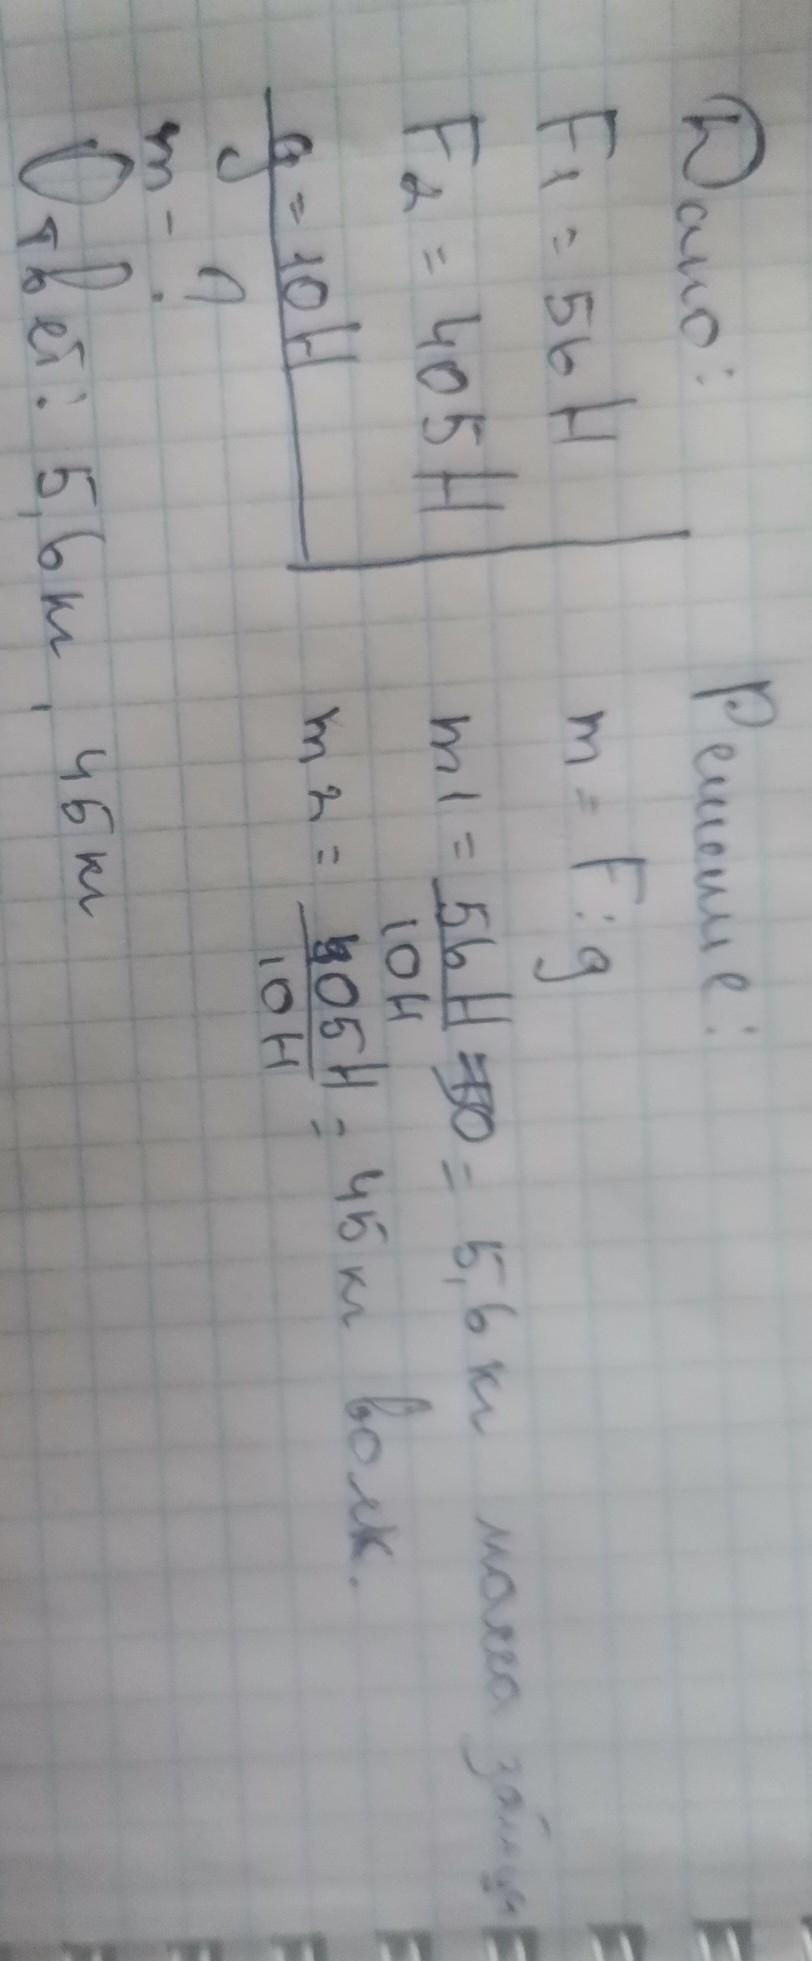 Дано:
F1 = 56 Н
F2 = 405 Н
g = 10 Н
m - ?
Решение:
m = F : g
m1 = 56 Н / 10 Н = 5,6 кг масса зайца
m2 = 405 Н / 10 Н = 45 кг волк.
Ответ: 5,6 кг, 45 кг